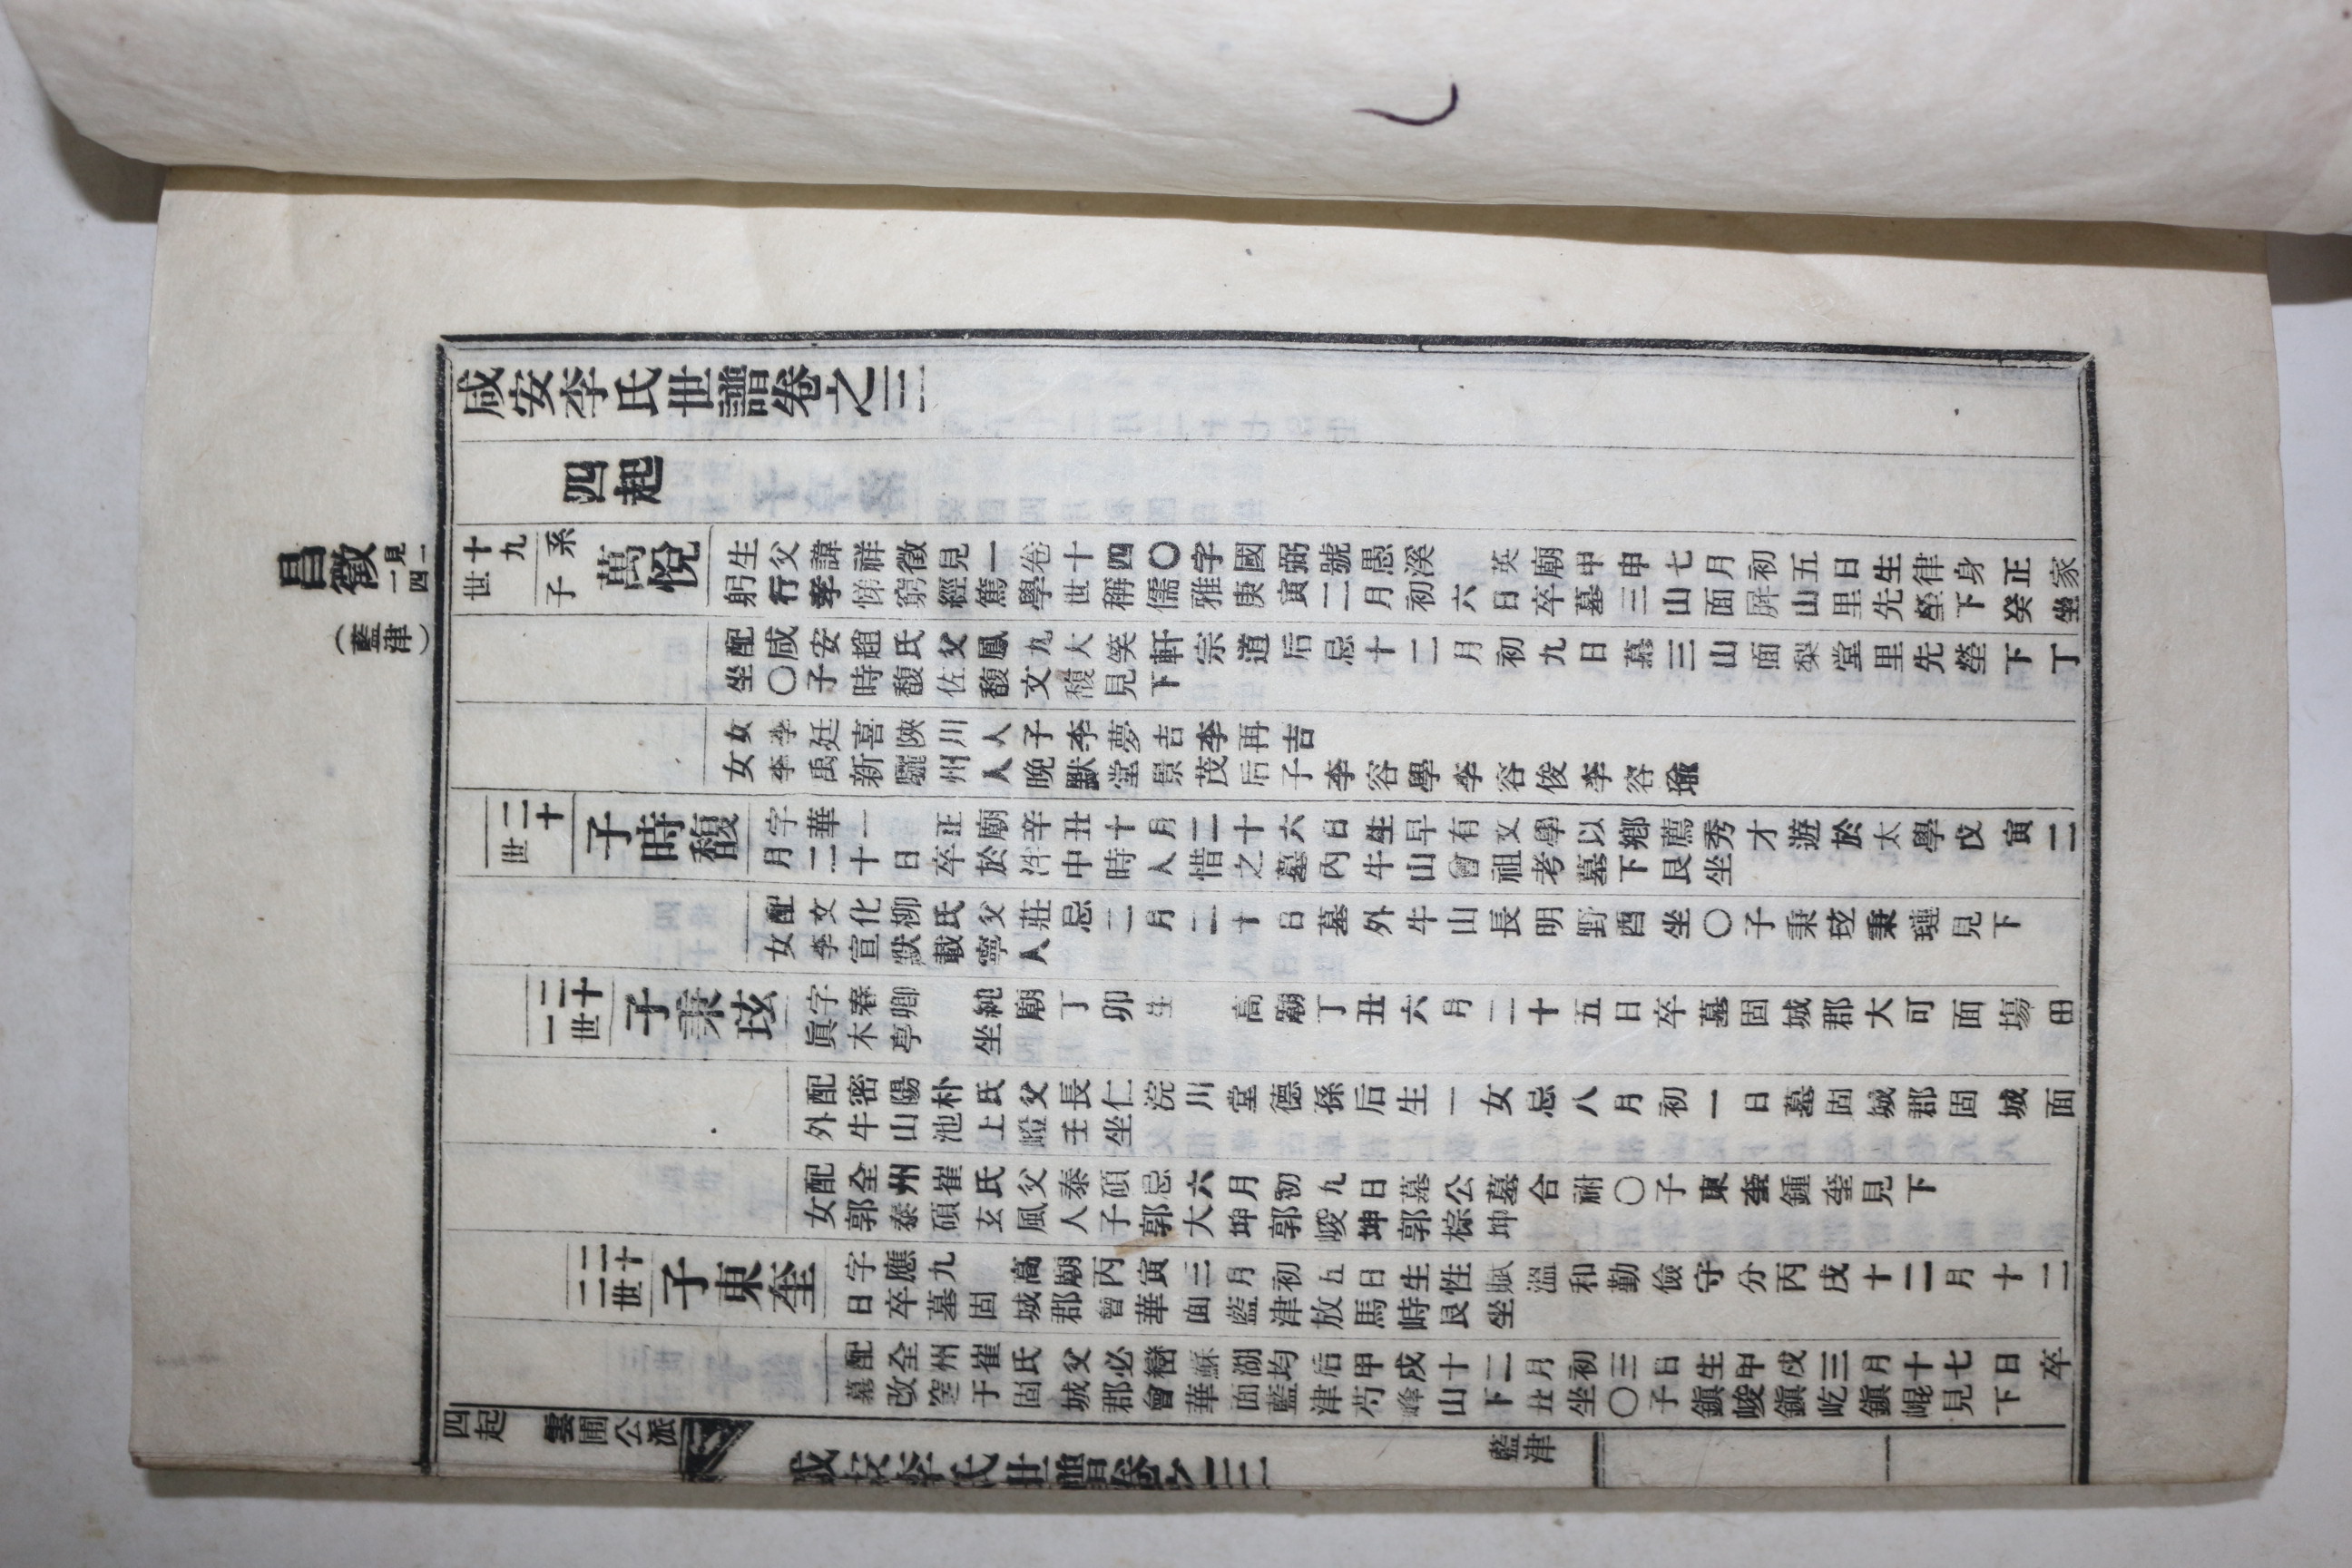 咸安李氏世譜卷之三
四起
昌徵 見一
一四
(藍津)
十九
世
系
子
萬悅
生父諱祥徵見一卷十四〇字國弼號愚溪 英廟甲申七月初五日生律身正家
躬行孝悌窮經篤學世稱儒雅庚寅二月初六日卒墓三山面屛山里先塋下癸坐
配咸安趙氏父鳳九大笑軒宗道后忌十二月初九日墓三山面梨堂里先塋下丁
坐〇子時馥佐馥文馥見下
女李廷喜陜川人子李夢吉李再吉
女李禹新驪州人晩默堂景茂后子李容學李容俊李容瑜
二十
世
子時馥
字華一 正廟辛丑十月二十六日生早有文學以鄕薦秀才遊於太學戊寅二
月二十日卒於泮中時人惜之墓內牛山會祖考墓下艮坐
配文化柳氏父莊忌二月二十日墓外牛山長明野酉坐〇子秉玹秉璉見下
女李宣默載寧人
二十
一世
子秉玹
字春卿 純廟丁卯生 高廟丁丑六月二十五日卒墓固城郡大可面塲田
眞木亭 坐
配密陽朴氏父長仁浣川堂德孫后生一女忌八月初一日墓固城郡固城面
外牛山池上嶝壬坐
配全州崔氏父泰碩忌六月初九日墓公墓合祔〇子東奎鍾奎見下
女郭泰碩玄風人子郭大坤郭峻坤郭棕坤
二十
二世
子東奎
字應九 高廟丙寅三月初五日生性賦溫和勤儉守分丙戌十二月十二
日卒墓固城郡會華面藍津放馬峙艮坐
配全州崔氏父必巒蘇湖均后甲戌十二月初三日生甲戌三月十七日卒
墓改窆于固城郡會華面藍津芍峰山下丑坐〇子鎭峻鎭屹鎭崐見下
四起 雲圃公派
咸安李氏世譜卷之三
藍津
一